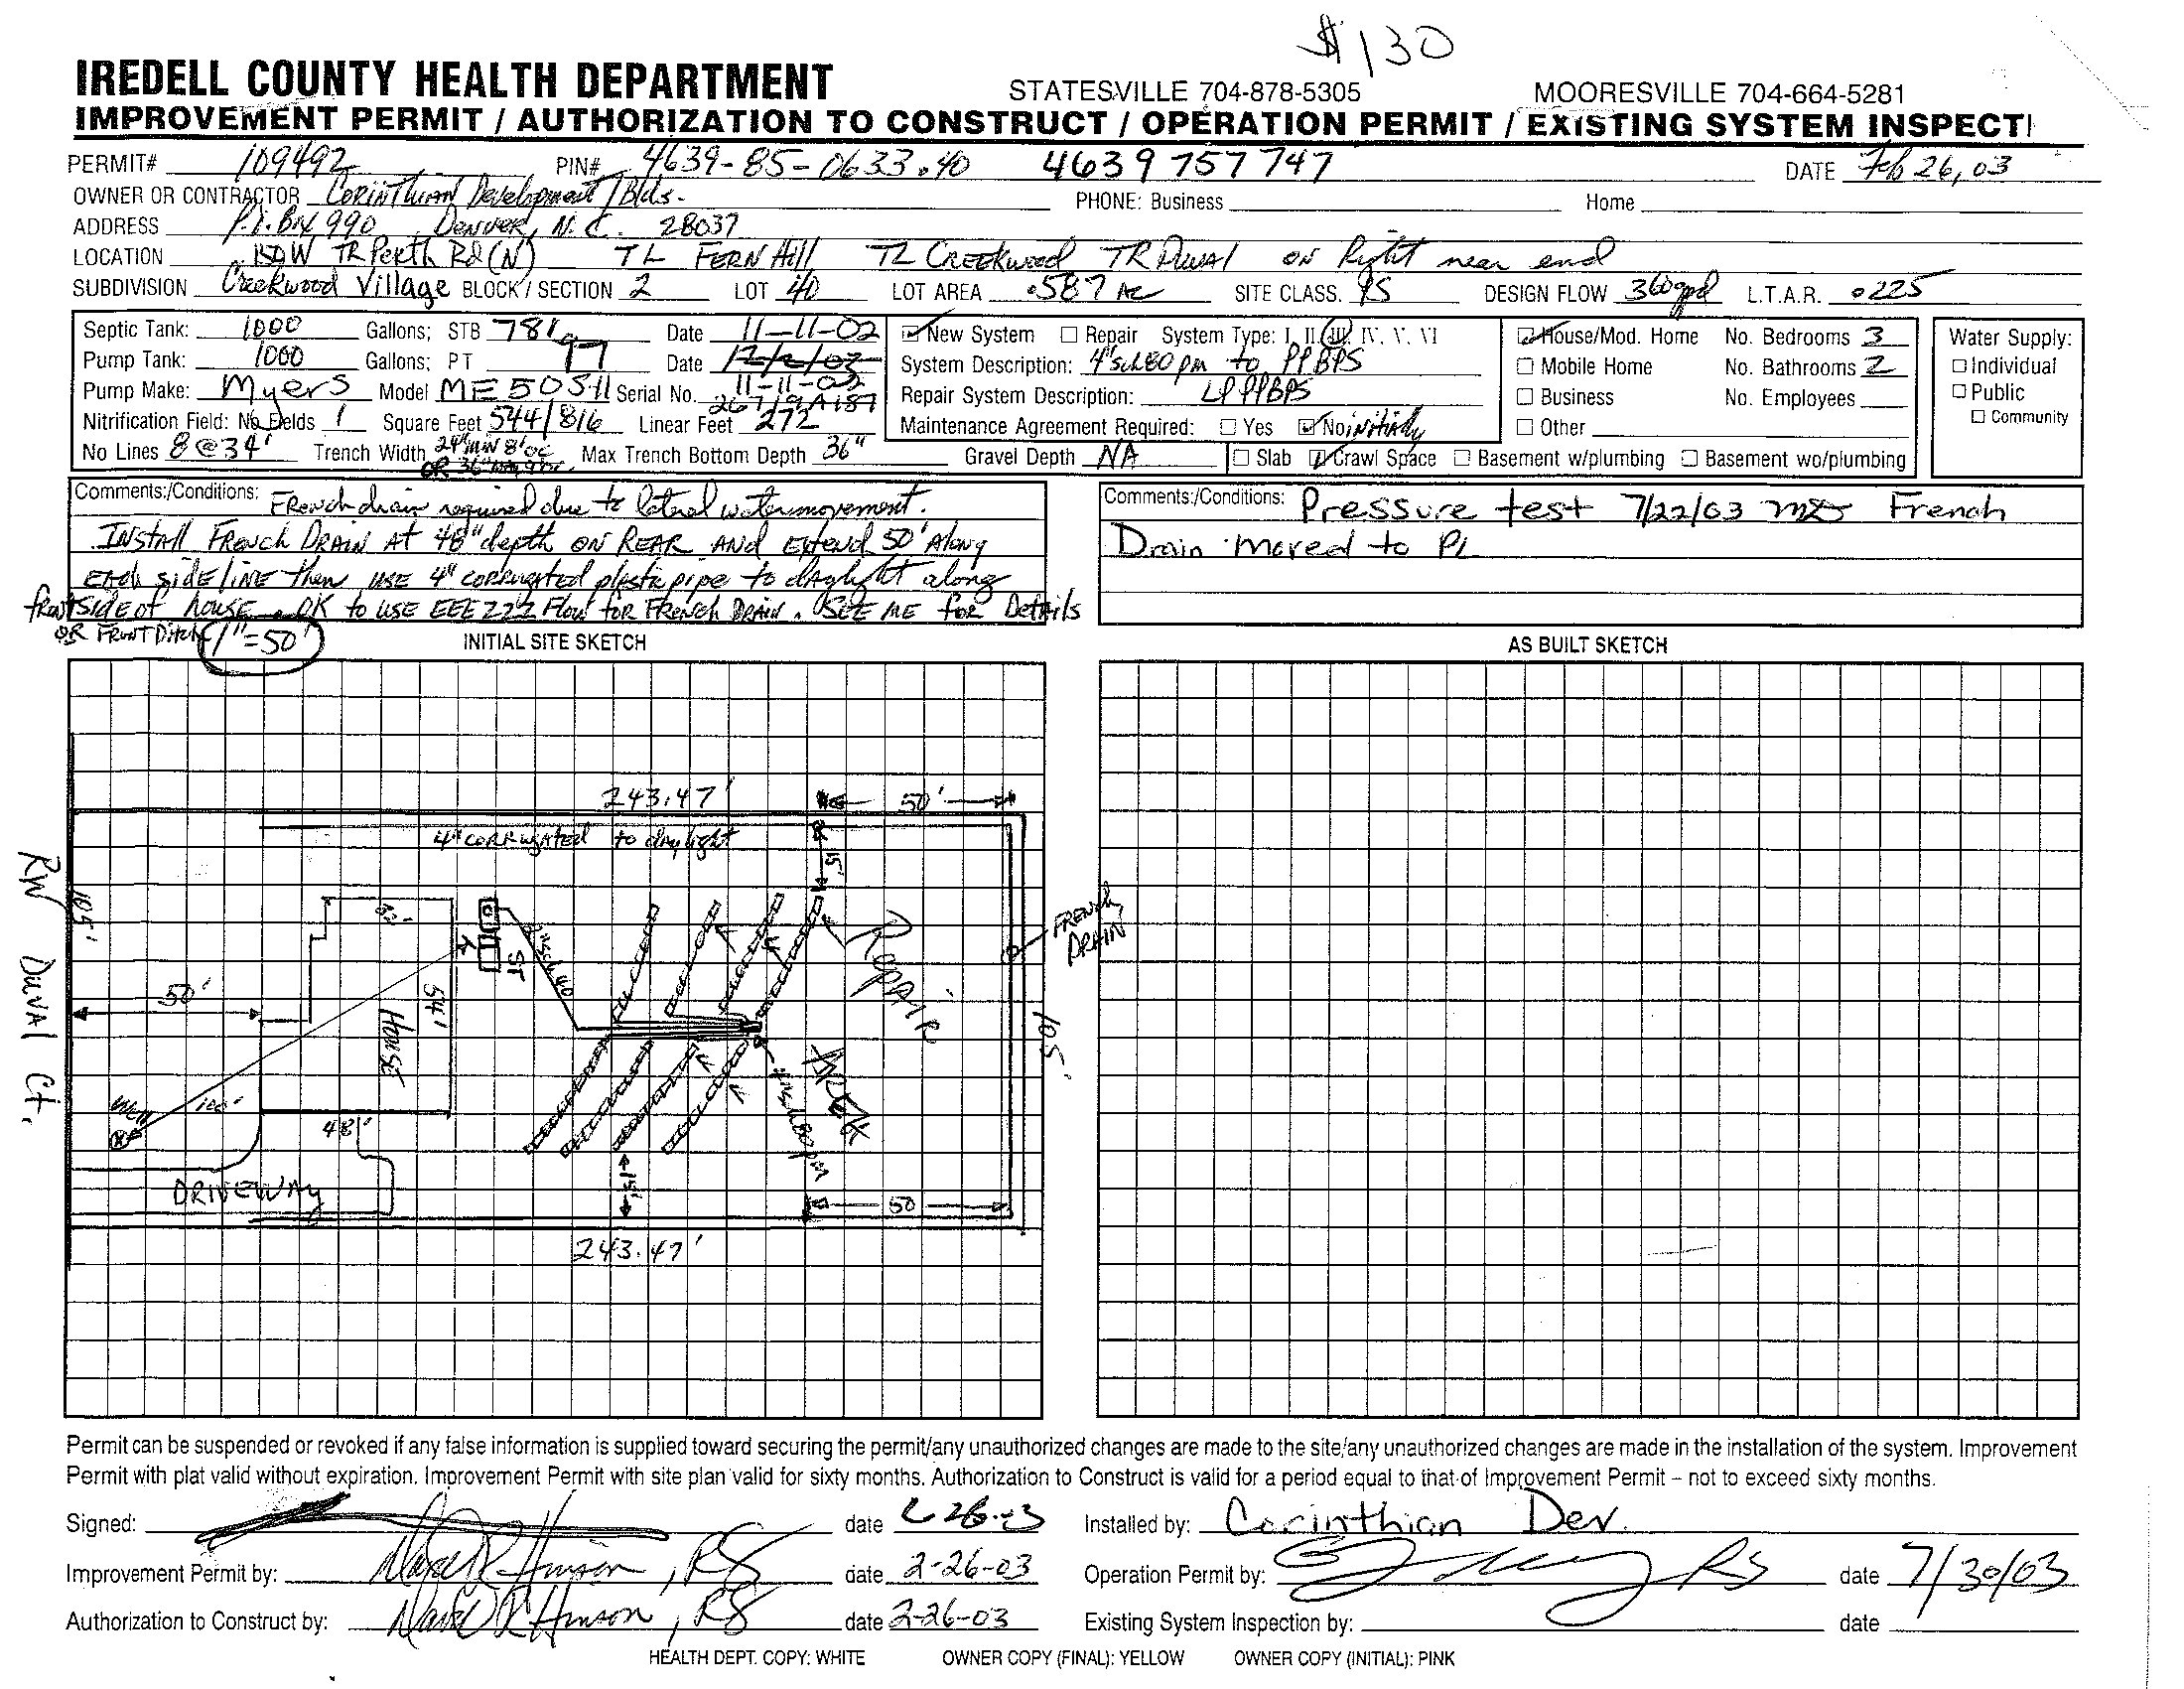 $130
IREDELL COUNTY HEALTH DEPARTMENT STATESVILLE 704-878-5305 MOORESVILLE 704-664-5281
IMPROVEMENT PERMIT / AUTHORIZATION TO CONSTRUCT / OPERATION PERMIT / EXISTING SYSTEM INSPECTI
PERMIT# 109492 PIN# 4639-85-0633.40 4639 757 747 DATE Feb 26, 03
OWNER OR CONTRACTOR Corinthian Development / Blds. PHONE: Business Home
ADDRESS P.O. Box 990 Denver, N.C. 28037
LOCATION 150W TR Perth Rd (N) TL FERN Hill TL CREEKwood TR Duval ON Right near end
SUBDIVISION Creekwood Village BLOCK / SECTION 2 LOT 40 LOT AREA .587 Ac SITE CLASS. PS DESIGN FLOW 360gpd L.T.A.R. .0225
Septic Tank: 1000 Gallons; STB 781 Date 11-11-02
Pump Tank: 1000 Gallons; PT 97 Date 12/2/02
11-11-02
Pump Make: Myers Model ME50S11 Serial No.
Nitrification Field: No Fields 1 Square Feet 544/816 Linear Feet 272
No Lines 8@34' Trench Width 24" MIN 8'oc Max Trench Bottom Depth 36" Gravel Depth NA
New System Repair System Type: I, II, III, IV, V, VI
System Description: 4" sch80 pm to PPBPS
Repair System Description: LPPPBPS
Maintenance Agreement Required: Yes No initially
House/Mod. Home No. Bedrooms 3
Mobile Home No. Bathrooms 2
Business No. Employees
Other
Slab Crawl Space Basement w/plumbing Basement wo/plumbing
Water Supply:
Individual
Public
Community
Comments:/Conditions: French drain required due to lateral water movement.
INSTALL FRENCH DRAIN AT 48" depth ON REAR AND Extend 50' Along
EACH sideline then USE 4" corrugated plastic pipe to daylight along
front side of house. OK to USE EEEZZZ Flow for FRENCH DRAIN. SEE ME for Details
OR FRONT Ditch 1"=50'
Comments:/Conditions: Pressure test 7/22/03 French
Drain moved to PL
INITIAL SITE SKETCH
243.47' 50'
4" corrugated to daylight
15'
RW Duval Ct.
105'
52'
ST
sch 40
Repair
FRENCH DRAIN
50'
54'
HOUSE
105'
Well 100'
48'
4" sch80 pm
DRIVEWAY
15'
50
243.47'
AS BUILT SKETCH
Permit can be suspended or revoked if any false information is supplied toward securing the permit/any unauthorized changes are made to the site/any unauthorized changes are made in the installation of the system. Improvement
Permit with plat valid without expiration. Improvement Permit with site plan valid for sixty months. Authorization to Construct is valid for a period equal to that of Improvement Permit – not to exceed sixty months.
Signed: date 2-26-03 Installed by: Corinthian Dev.
Improvement Permit by: Hinson, RS date 2-26-03 Operation Permit by: RS date 7/30/03
Authorization to Construct by: Hinson, RS date 2-26-03 Existing System Inspection by: date
HEALTH DEPT. COPY: WHITE OWNER COPY (FINAL): YELLOW OWNER COPY (INITIAL): PINK